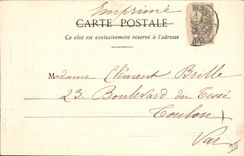 Imprimé
CARTE POSTALE
Ce côté est exclusivement réservé à l'adresse
Madame Clément Brelle
23 Boulevard du Tessé
Toulon
Var